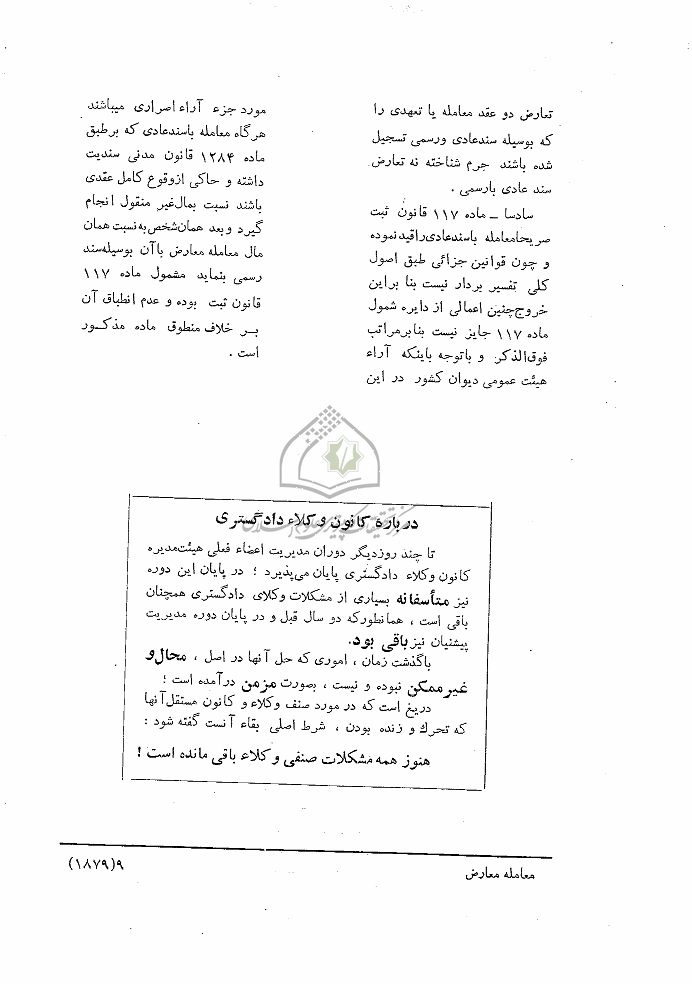 تعارض دو عقد معامله یا تعهدی را
که بوسیله سندعادی ورسمی تسجیل
شده باشند جرم شناخته نه تعارض
سند عادی بارسمی .
سادسا ــ ماده ۱۱۷ قانون ثبت
صریحامعامله باسندعادی‌راقیدنموده
و چون قوانین جزائی طبق اصول
کلی تفسیر بردار نیست بنا براین
خروج‌چنین اعمالی از دایره شمول
ماده ۱۱۷ جایز نیست بنابرمراتب
فوق‌الذکر و باتوجه باینکه آراء
هیئت عمومی دیوان کشور در این
مورد جزء آراء اصراری میباشند
هرگاه معامله باسندعادی که برطبق
ماده ۱۲۸۴ قانون مدنی سندیت
داشته و حاکی ازوقوع کامل عقدی
باشند نسبت بمال‌غیر منقول انجام
گیرد و بعد همان‌شخص به‌نسبت همان
مال معامله معارض باآن بوسیله‌سند
رسمی بنماید مشمول ماده ۱۱۷
قانون ثبت بوده و عدم انطباق آن
بــر خلاف منطوق ماده مذکــور
است .
دربارهٔ کانون وکلاء دادگستری
تا چند روزدیگر دوران مدیریت اعضاء فعلی هیئت‌مدیره
کانون وکلاء دادگستری پایان می‌پذیرد ؛ در پایان این دوره
نیز متأسفانه بسیاری از مشکلات وکلای دادگستری همچنان
باقی است ، همانطورکه دو سال قبل و در پایان دوره مدیریت
پیشنیان نیز باقی بود.
باگذشت زمان ، اموری که حل آنها در اصل ، محال‌و
غیرممکن نبوده و نیست ، بصورت مزمن درآمده است ؛
دریغ است که در مورد صنف وکلاء و کانون مستقل آنها
که تحرك و زنده بودن ، شرط اصلی بقاء آنست گفته شود :
هنوز همه مشکلات صنفی وکلاء باقی مانده است !
معامله معارض
۹(۱۸۷۹)